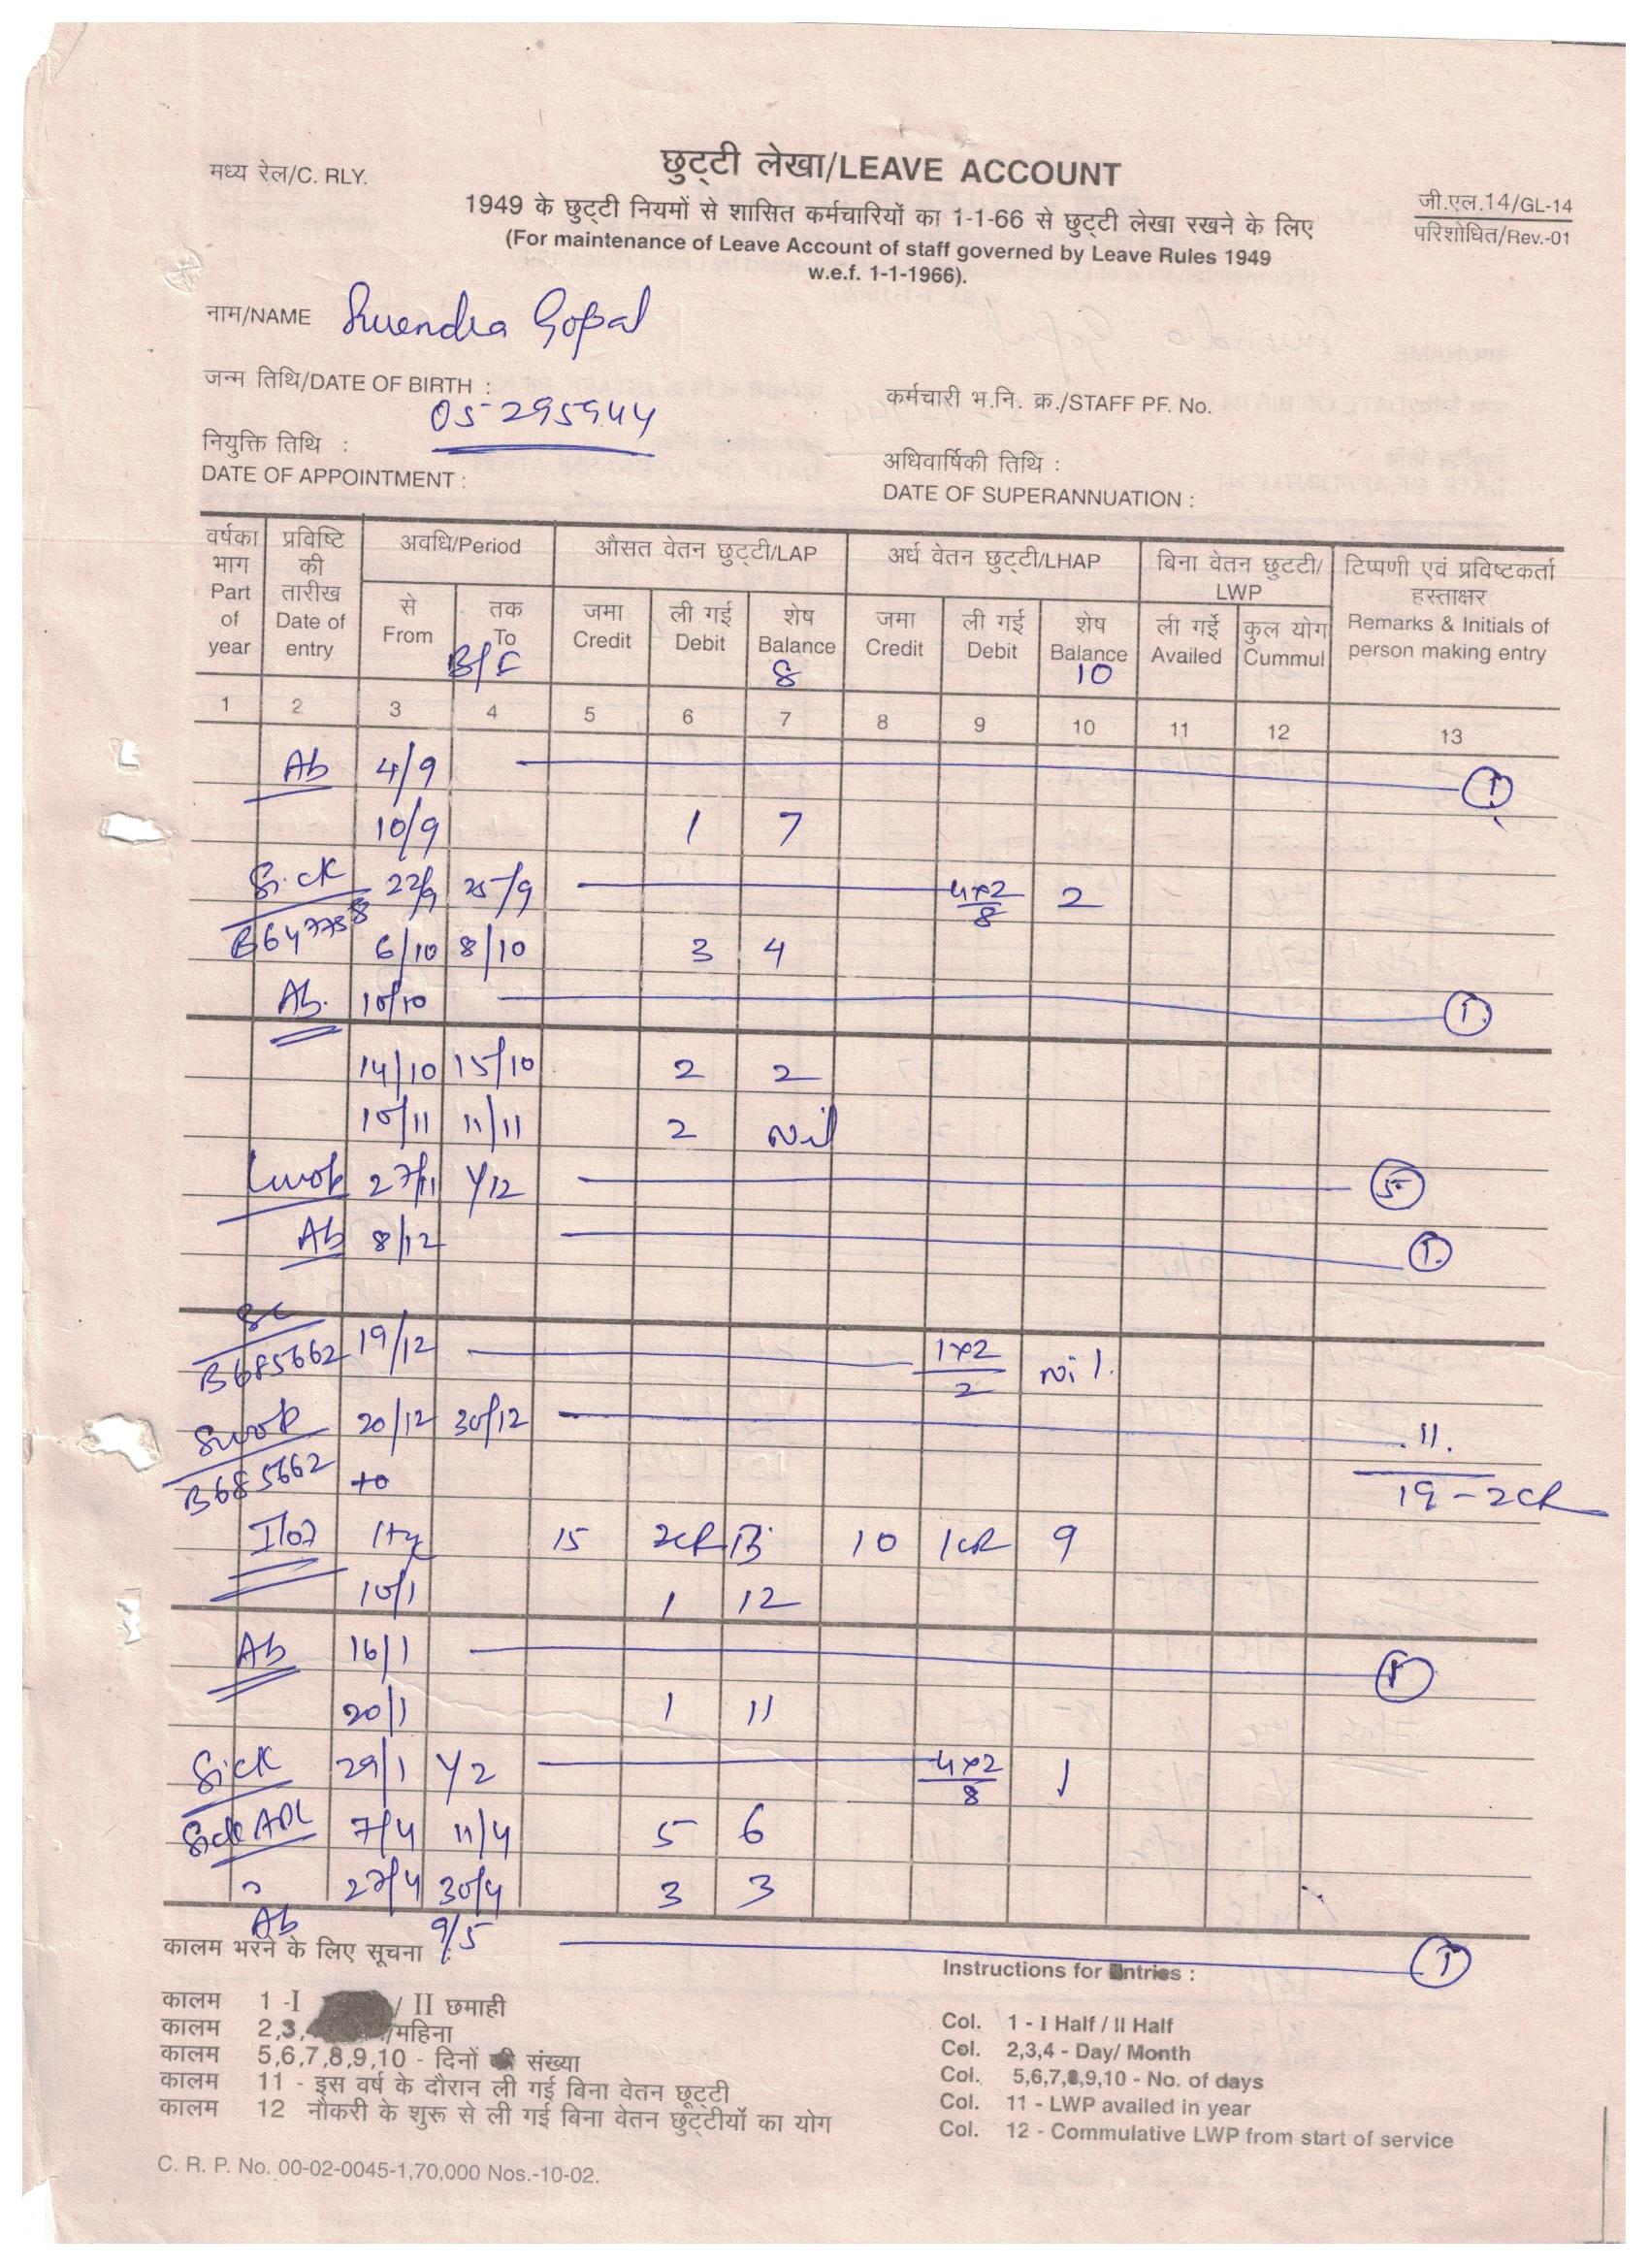 मध्य रेल/C. RLY.
छुट्टी लेखा/LEAVE ACCOUNT
1949 के छुट्टी नियमों से शासित कर्मचारियों का 1-1-66 से छुट्टी लेखा रखने के लिए
(For maintenance of Leave Account of staff governed by Leave Rules 1949
w.e.f. 1-1-1966).
जी.एल.14/GL-14
परिशोधित/Rev.-01
नाम/NAME Surendra Gopal
जन्म तिथि/DATE OF BIRTH :
05295944
कर्मचारी भ.नि. क्र./STAFF PF. No.
नियुक्ति तिथि :
DATE OF APPOINTMENT :
अधिवार्षिकी तिथि :
DATE OF SUPERANNUATION :
वर्षका भाग Part of year
प्रविष्टि की तारीख Date of entry
अवधि/Period
से From
तक To
औसत वेतन छुट्टी/LAP
जमा Credit
ली गई Debit
शेष Balance
अर्ध वेतन छुट्टी/LHAP
जमा Credit
ली गई Debit
शेष Balance
बिना वेतन छुटटी/LWP
ली गई Availed
कुल योग Cummul
टिप्पणी एवं प्रविष्टकर्ता हस्ताक्षर
Remarks & Initials of person making entry
B/F 8 10
1 2 3 4 5 6 7 8 9 10 11 12 13
Ab 4/9 1
10/9 1 7
Sick 22/9 25/9 4x2/8 2
B647758 6/10 8/10 3 4
Ab. 10/10 1.
14/10 15/10 2 2
10/11 11/11 2 Nil
Lwop 27/11 1/12 5
Ab 8/12 1.
B685662 19/12 1x2/2 Nil.
Swop 20/12 30/12 11.
B685662 to 19-2CR
I/07 15 2CR 13 10 1CR 9
10/1 1 12
Ab 16/1 1
20/1 1 11
Sick 29/1 1/2 4x2/8 1
Sick 7/4 11/4 5 6
27/4 30/4 3 3
Ab 9/5 1
कालम भरने के लिए सूचना :
कालम 1 -I / II छमाही
कालम 2,3, /महिना
कालम 5,6,7,8,9,10 - दिनों की संख्या
कालम 11 - इस वर्ष के दौरान ली गई बिना वेतन छूट्टी
कालम 12 नौकरी के शुरू से ली गई बिना वेतन छुट्टीयों का योग
Instructions for Entries :
Col. 1 - I Half / II Half
Col. 2,3,4 - Day/ Month
Col. 5,6,7,8,9,10 - No. of days
Col. 11 - LWP availed in year
Col. 12 - Commulative LWP from start of service
C. R. P. No. 00-02-0045-1,70,000 Nos.-10-02.